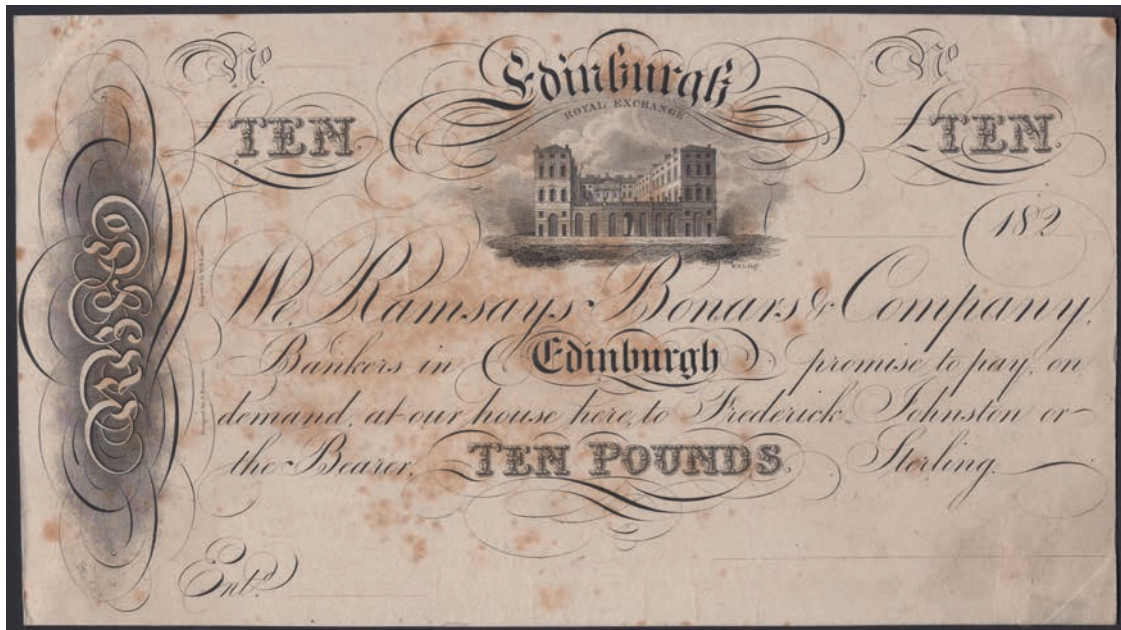 Edinburgh
ROYAL EXCHANGE.
No. No.
£TEN. £TEN.
182
We, Ramsays, Bonars & Company,
Bankers in Edinburgh promise to pay, on
demand, at our house here, to Frederick Johnston or
the Bearer, TEN POUNDS. Sterling.
Entd.